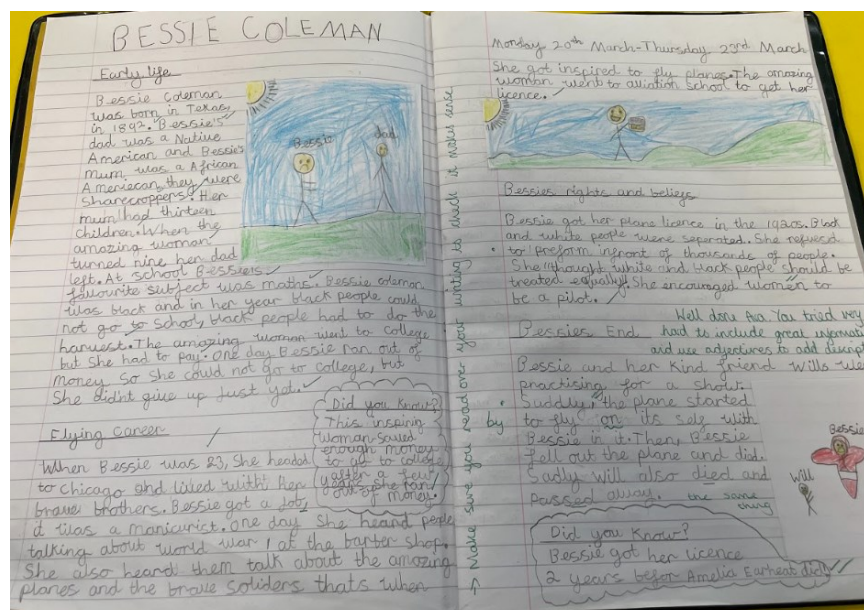 BESSIE COLEMAN
Early life
Bessie Coleman
was born in Texas,
in 1892. Bessie's
dad was a Native
American and Bessie's
mum, was a African
Ameriecan, they were
sharecroppers. Her
mum had thirteen
children. When the
amazing woman
turned nine her dad
left. At school Bessie's
favourite subject was maths. Bessie coleman
was black and in her year black people could
not go to school, black people had to do the
harvest. The amazing woman went to college
but she had to pay. One day Bessie ran out of
money so she could not go to college, but
She didn't give up Just yet.
Bessie
dad
Flying Career
When Bessie was 23, She headed
to Chicago and lived with: her
brave brothers. Bessie got a Job,
it was a manicurist. One day She heard people
talking about world war 1 at the barber shop.
She also heard them talk about the amazing
planes and the brave soliders thats when
Did you Know?
This inspiring
woman saved
enough money
to go to college
after a few
years she ran
out of money.
→ Make sure you read over your writing to check it makes sense
Monday 20th March-Thursday 23rd March
She got inspired to fly planes. The amazing
woman went to aviation school to get her
licence.
Bessies rights and beliefs
Bessie got her plane licence in the 1920s. Black
and white people were separated. She refused
to preform infront of thousands of people.
She thought white and black people should be
treated equally. She encouraged women to
be a pilot.
Well done Ava. You tried very
hard to include great
and use adjectives to add
Bessies End
Bessie and her kind friend Wills
practising for a show.
Suddly, the plane started
by to fly on its self with
Bessie in it. Then, Bessie
fell out the plane and did.
Sadly Will also died and
passed away. the same
thing
Bessie
Will
Did you Know?
Bessie got her licence
2 years befor Amelia Earheat did!